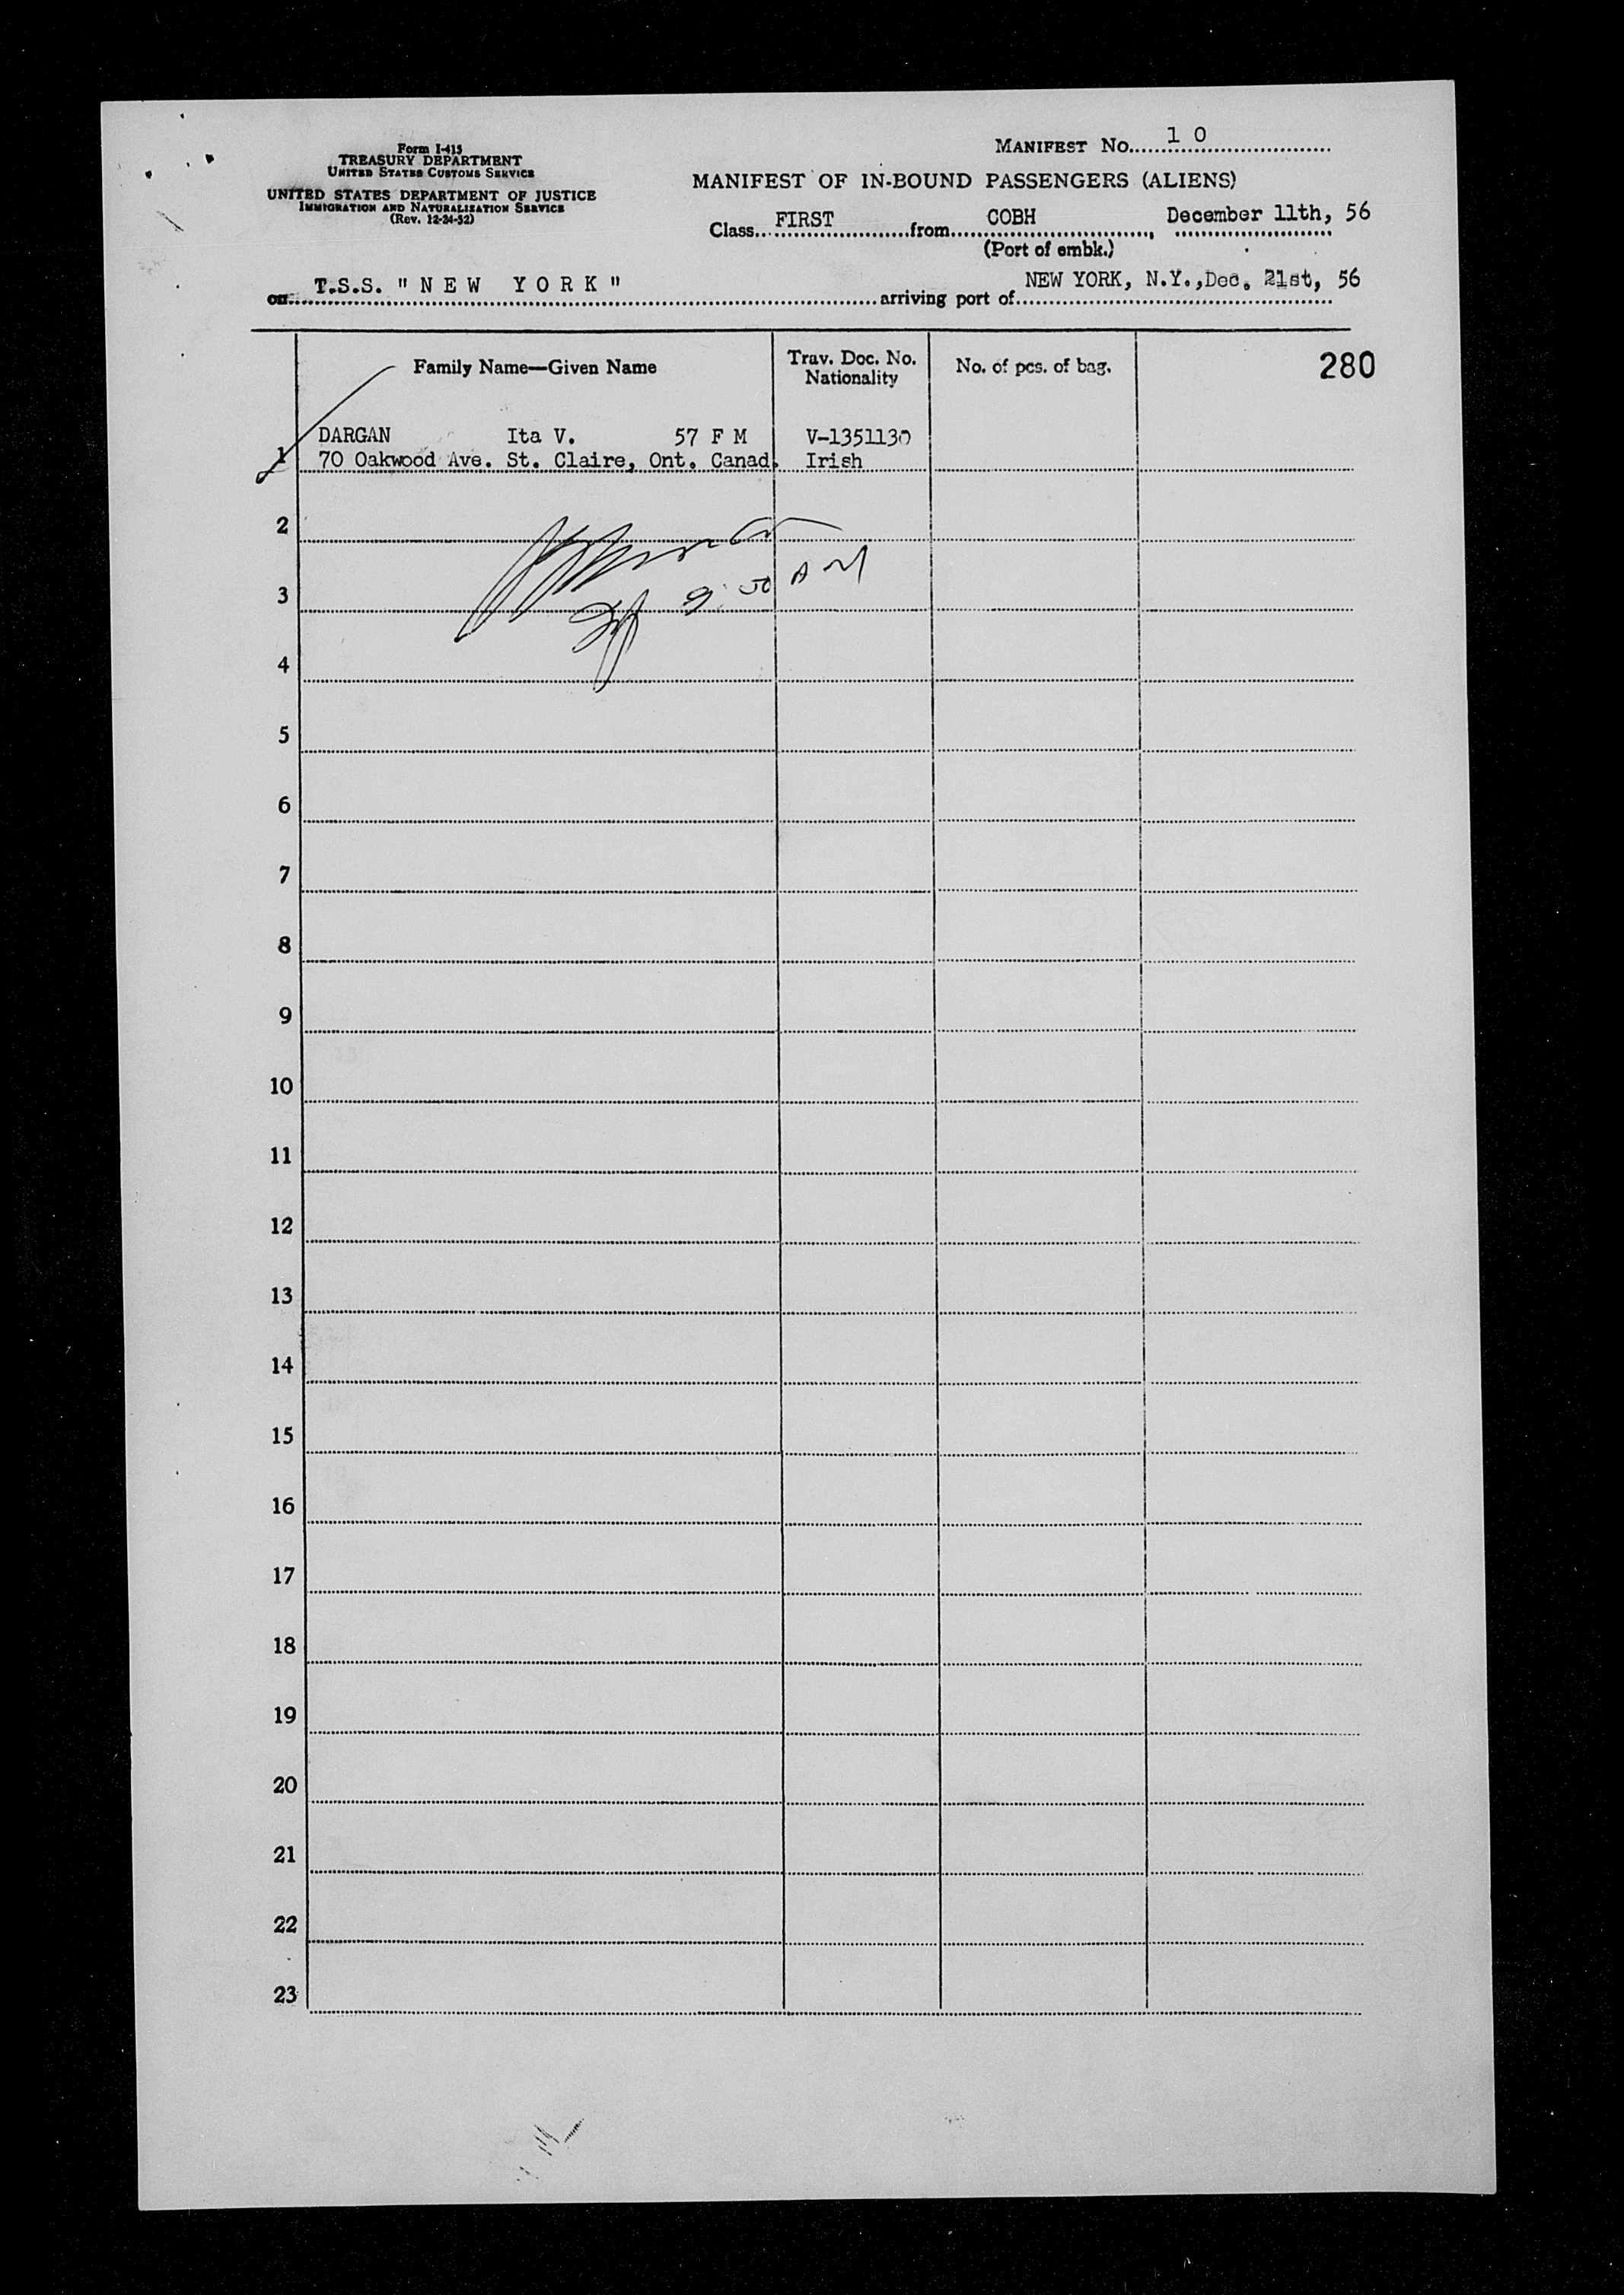 Form I-415
TREASURY DEPARTMENT
UNITED STATES CUSTOMS SERVICE
UNITED STATES DEPARTMENT OF JUSTICE
IMMIGRATION AND NATURALIZATION SERVICE
(Rev. 12-24-52)
MANIFEST No. 1 0
MANIFEST OF IN-BOUND PASSENGERS (ALIENS)
Class FIRST from COBH, December 11th, 56
(Port of embk.)
on T.S.S. "NEW YORK" arriving port of NEW YORK, N.Y.,Dec. 21st, 56
Family Name—Given Name Trav. Doc. No. Nationality No. of pcs. of bag. 280
DARGAN Ita V. 57 F M V-1351130
1 70 Oakwood Ave. St. Claire, Ont. Canad. Irish
2
3 9:50 AM
4
5
6
7
8
9
10
11
12
13
14
15
16
17
18
19
20
21
22
23